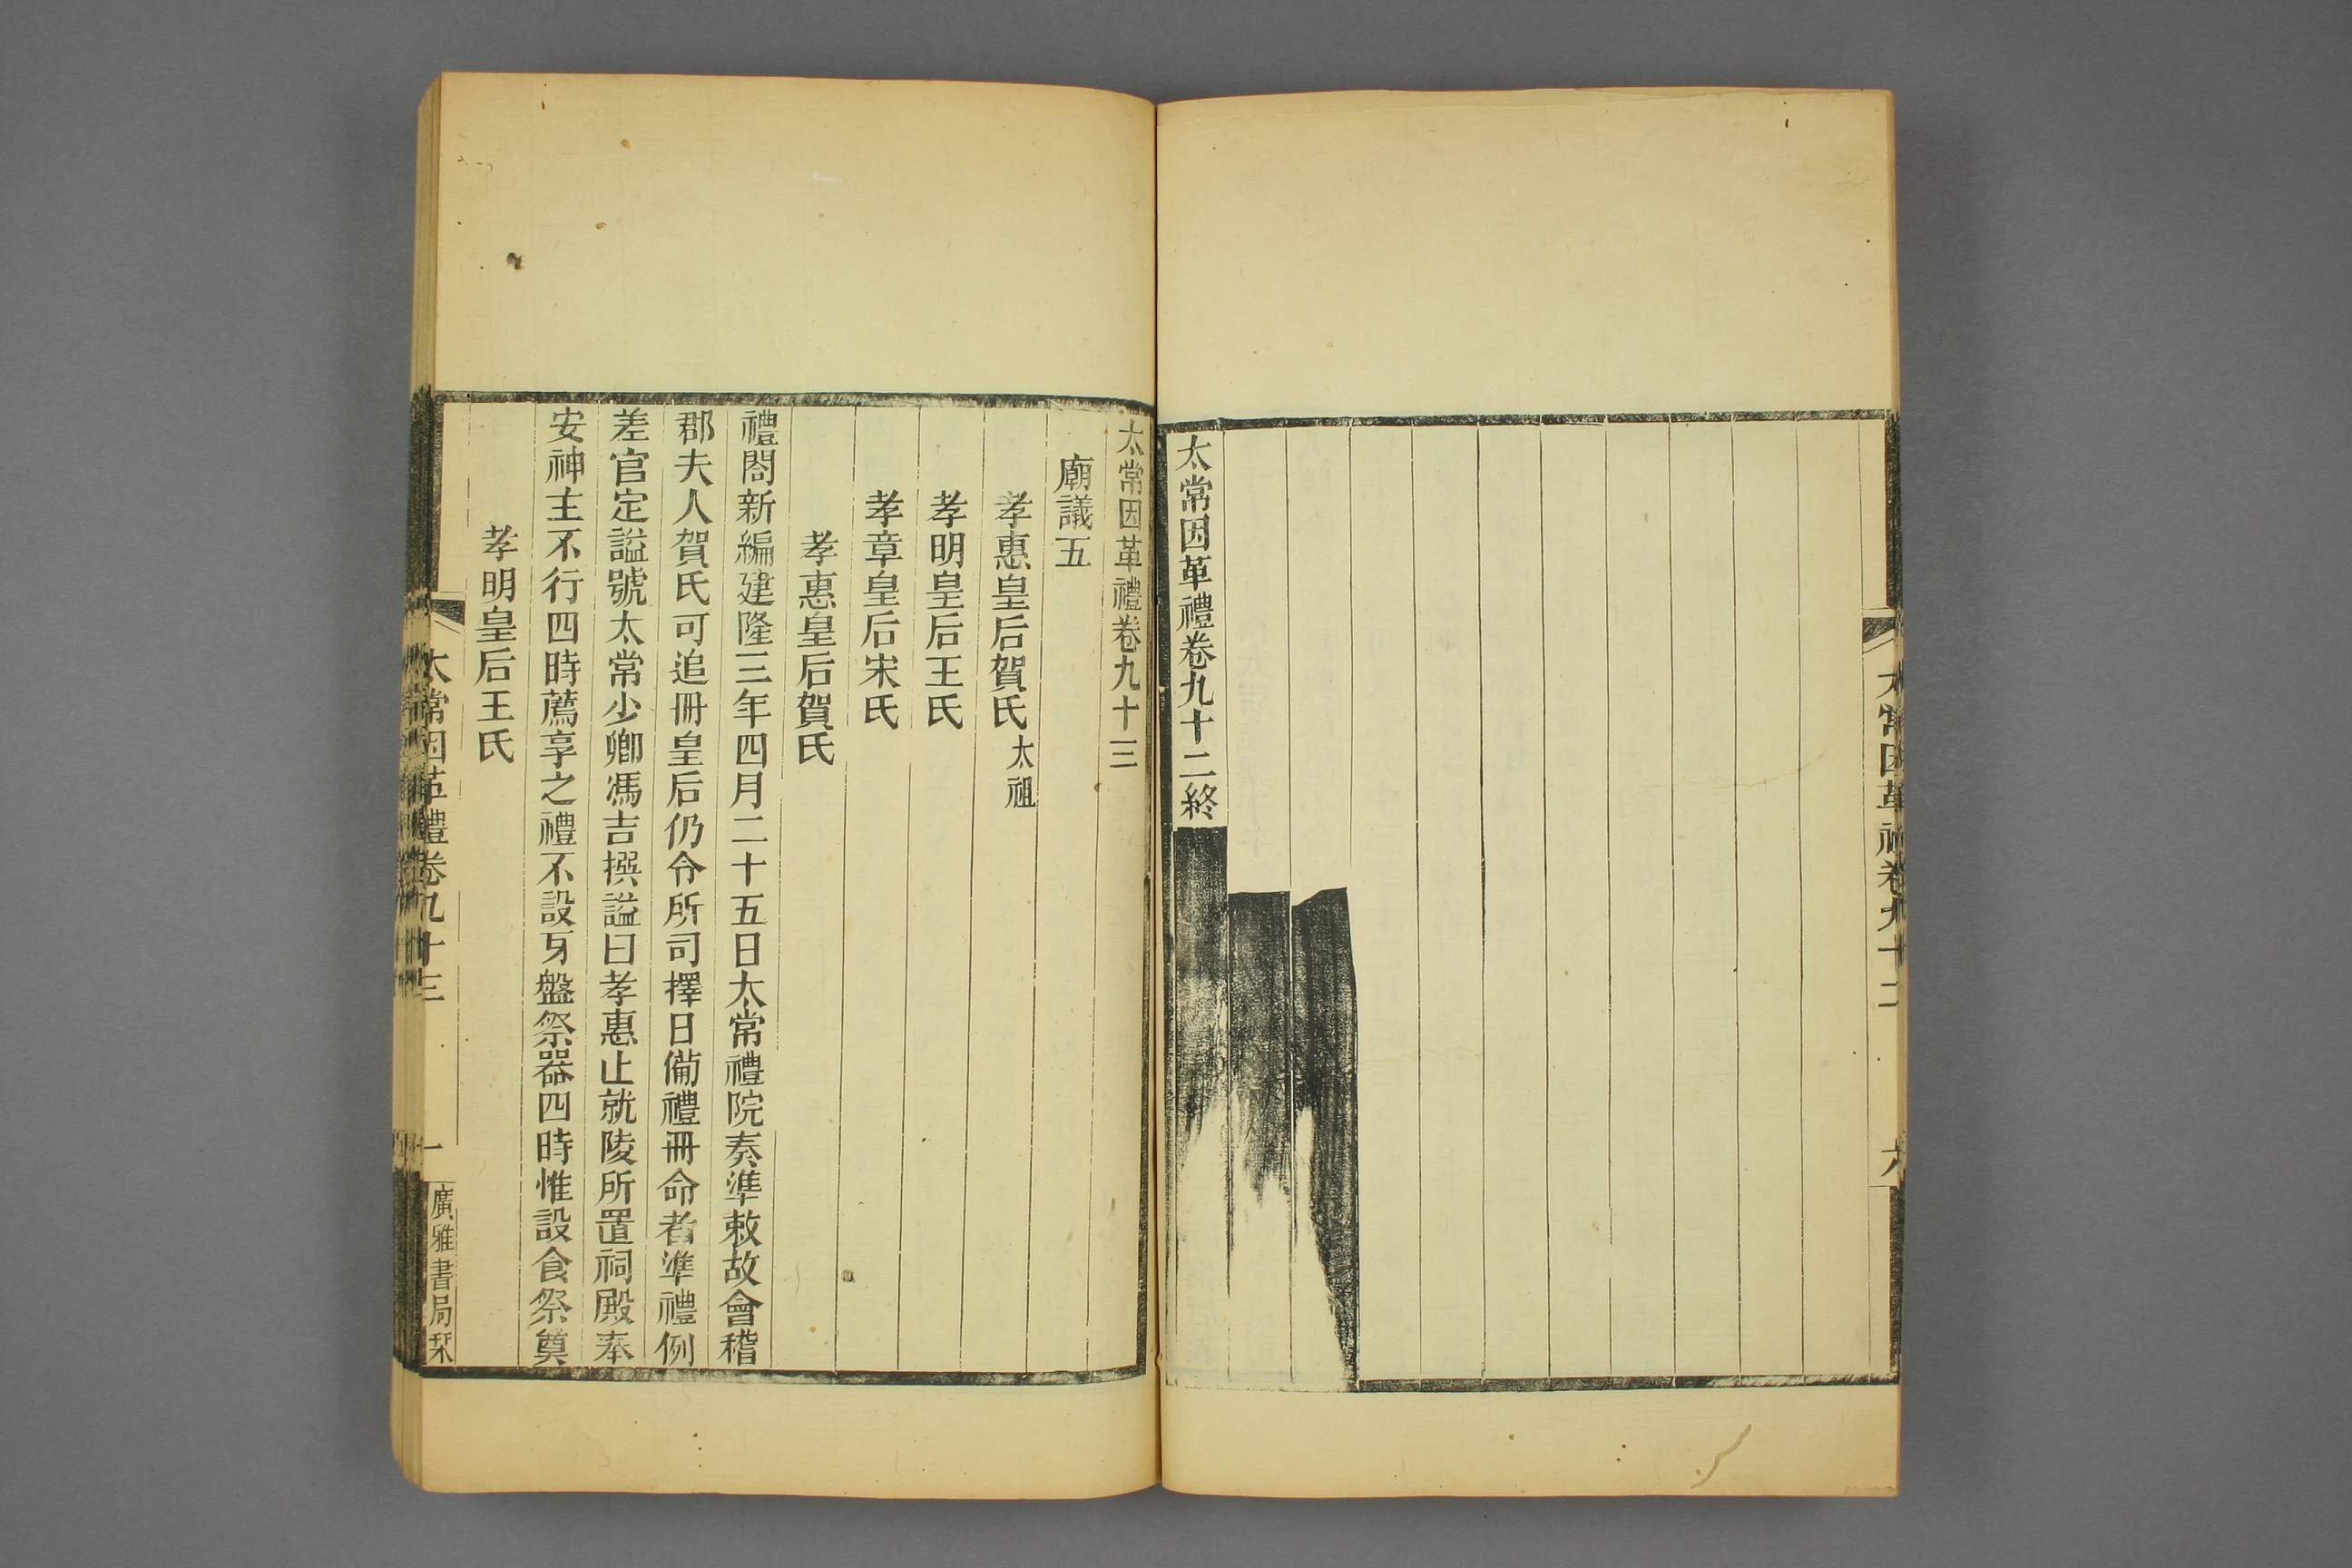 太常因革禮卷九十二
六
太常因革禮卷九十二終
太常因革禮卷九十三
廟議五
孝惠皇后賀氏太祖
孝明皇后王氏
孝章皇后宋氏
孝惠皇后賀氏
禮閣新編建隆三年四月二十五日太常禮院奏準敕故會稽
郡夫人賀氏可追冊皇后仍令所司擇日備禮冊命者準禮例
差官定謚號太常少卿馮吉撰謚曰孝惠止就陵所置祠殿奉
安神主不行四時薦享之禮不設牙盤祭器四時惟設食祭奠
孝明皇后王氏
太常因革禮卷九十三
一
廣雅書局栞